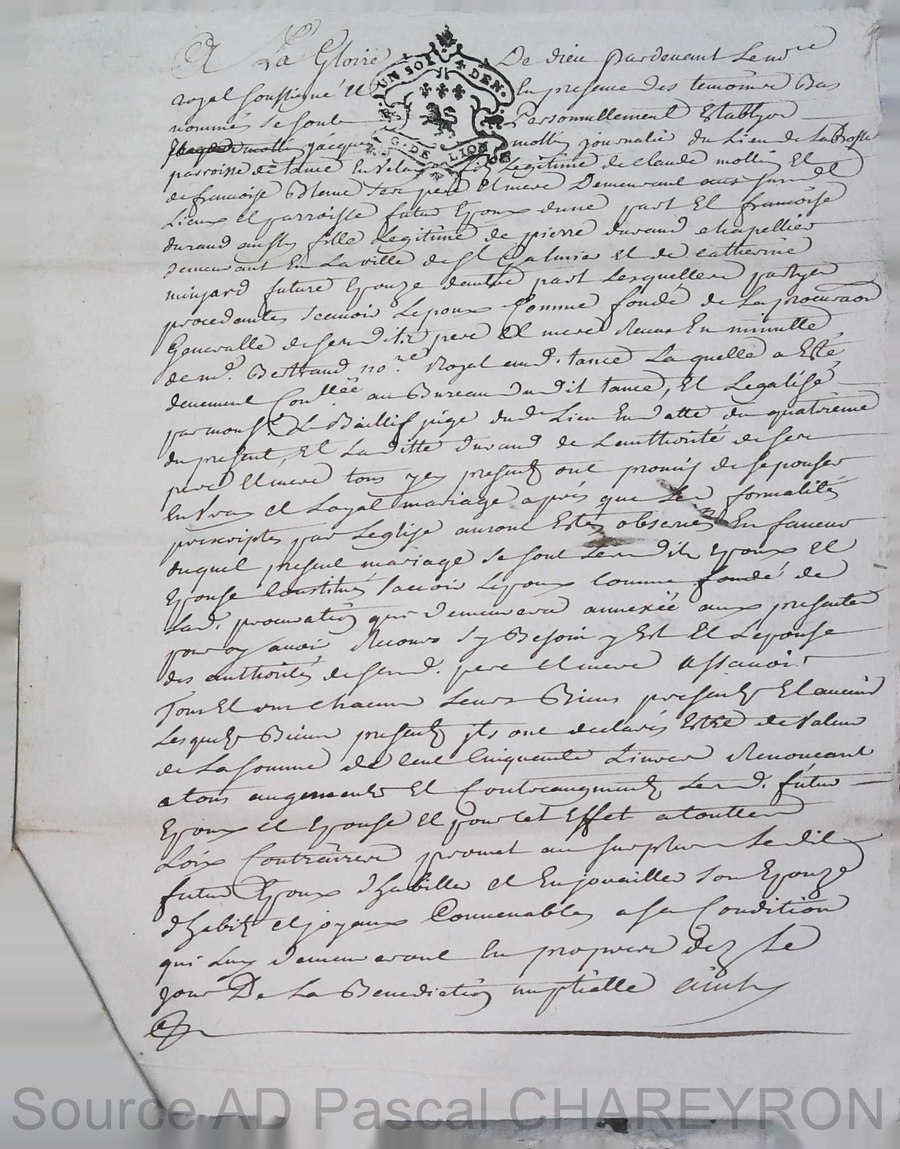 A La Gloire De dieu pardevant Le no.re
royal soussigné Et En presence des temoins Bas
nommés se sont Personnellement Etablys
jacques mollin journalié du Lieu de La Brosse
parroisse de tance En Velay fils Legitime de claude mollin Et
de francoise pere Et mere Demeurant aus susd.
Lieux et parroisse futur Epoux dune part Et francoise
durand aussy fille Legitime de pierre durand chapellier
demeurant En La ville de st Galmier et de catherine
minjard future Epouze dautre part Lesquelles partyes
procedantes scavoir Lepoux Comme fondé de La procuraon
Generalle de sesdits pere Et mere Receue En minutte
de m.e Bertrand no.re Royal aud. tance La quelle a Eté
deuement Conllée au Bureau dudit tance, Et Legalisé
par mons.r Le Baillif juge dud. Lieu En datte du quatrieme
du present, Et Laditte durand de Lauthorité de ses
pere Et mere tous ycy presents ont promis de sepouser
En vray et Loyal mariage apres que Les formalités
prescriptes par Leglise auront Eté observés En faveur
duquel present mariage se sont Lesdits Epoux Et
Epouse Constitués scavoir Lepoux Comme fondé de
Lad. procuration qui demeurera annexée aux presentes
pour y avoir Recours sy Besoin y Est Et Lepouse
des authorités de sesd. pere Et mere assavoir
Tous Et un chacun Leurs Biens presents Et avenir
Lesquels Biens presents ils ont declarés Estre de Valeur
de La somme de cent Cinquante Livres Renoncant
a tous augements Et Contreaugments Lesd. futur
Epoux et Epouse Et pour cet Effet a touttes
Loix Contraires promet au surplus Ledit
futur Epoux d'habiller et Enjoualler son Epouze
d'habits et joyaux Convenables a sa Condition
qui Luy demeureront En propriere dez Le
jour De La Benediction nuptialle ainsy
UN SOL 4 DEN.
G. DE LION
Source AD Pascal CHAREYRON